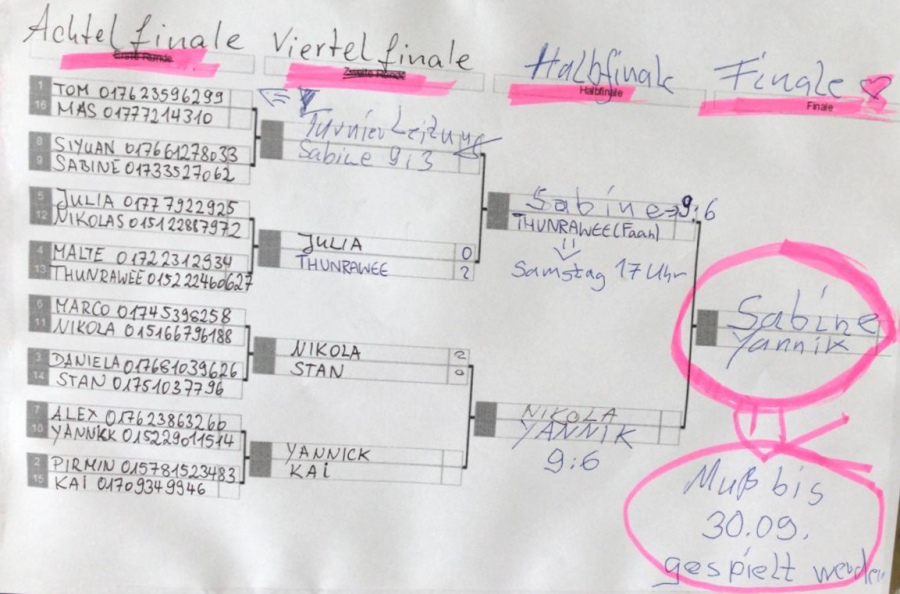 Achtelfinale
Erste Runde
Viertelfinale
Zweite Runde
Halbfinale
Halbfinale
Finale
Finale
1 TOM 017623596299
16 MAS 01777214310
8 SIYUAN 017661278033
9 SABINE 01733527062
5 JULIA 01777922925
12 NIKOLAS 015122867972
4 MALTE 01722312934
13 THUNRAWEE 015222460627
6 MARCO 01745398258
11 NIKOLA 015166796188
3 DANIELA 017681039626
14 STAN 01751037796
7 ALEX 01762386326b
10 YANNICK 015229011514
2 PIRMIN 015781523483
15 KAI 01709349946
Turnierleitung
Sabine 9:3
JULIA 0
THUNRAWEE 2
NIKOLA 2
STAN 0
YANNICK
KAI
Sabine → 9:6
THUNRAWEE (Faah)
Samstag 17 Uhr
NIKOLA
YANNIK
9:6
Sabine
Yannik
Muß bis
30.09.
gespielt werden